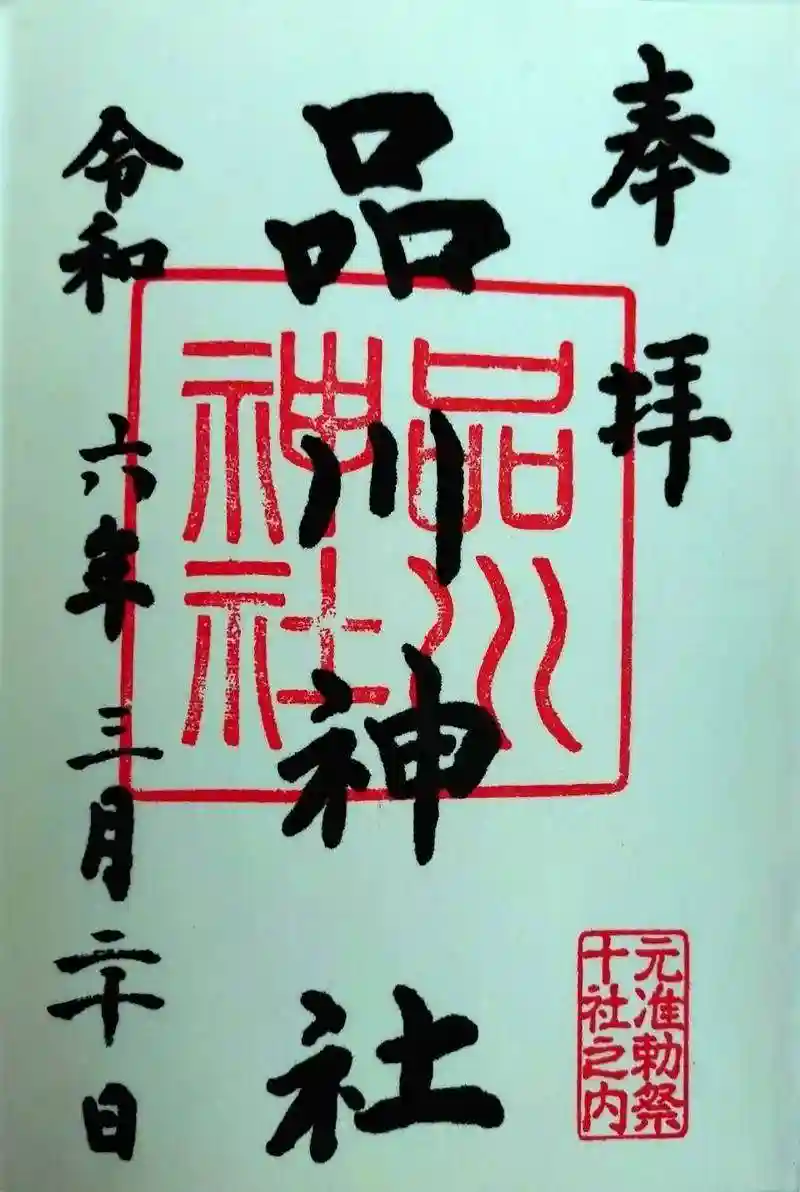 奉拝
品川神社
品川
神社
令和六年三月二十日
元准勅祭
十社之内